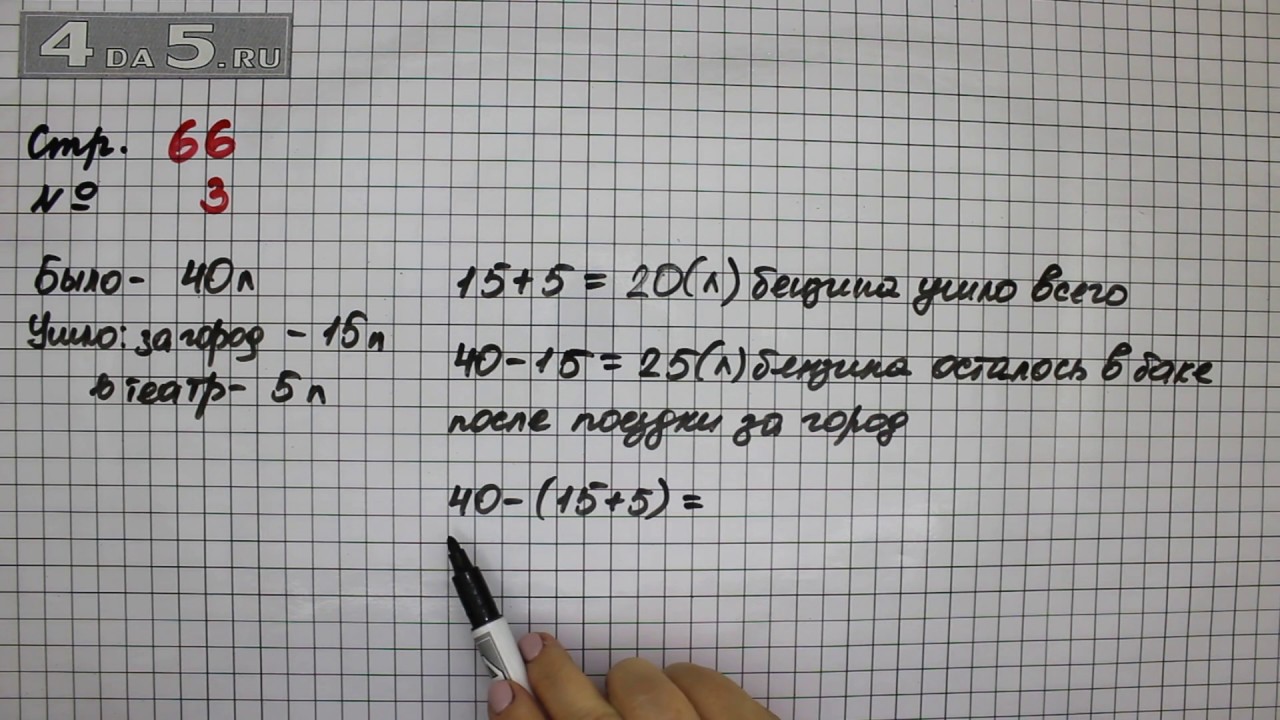 4 DA 5.RU
Стр. 66
№ 3
Было - 40л
Ушло: за город - 15л
в театр - 5л
15+5 = 20(л) бензина ушло всего
40-15 = 25(л) бензина осталось в баке
после поездки за город
40-(15+5) =